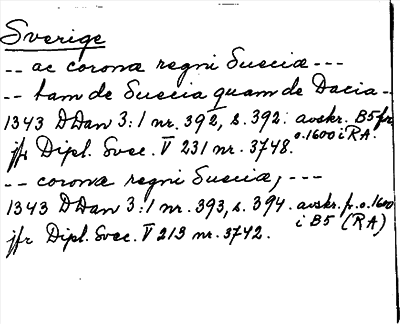 Sverige
-- ac corona regni Sueciæ ---
-- tam de Suecia quam de Dacia --
1343 DDan 3:1 nr. 392, s. 392. avskr. B5 fr. o. 1600 i RA.
jfr Dipl. Svec. V 231 nr. 3748.
-- corona regni Sueciæ, ---
1343 DDan 3:1 nr. 393, s. 394. avskr. fr. o. 1600 i B5 (RA)
jfr Dipl. Svec. V 213 nr. 3742.